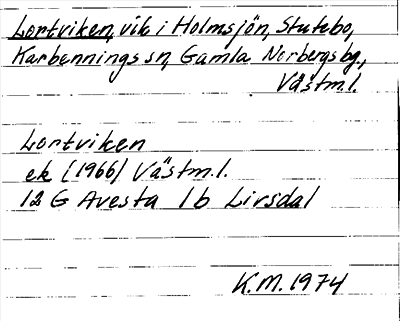 Lortviken, vik i Holmsjön, Stutebo,
Karbennings sn, Gamla Norbergs bg,
Västm.l.
Lortviken
ek (1966) Västm.l.
12 G Avesta 1b Lirsdal
K.M. 1974